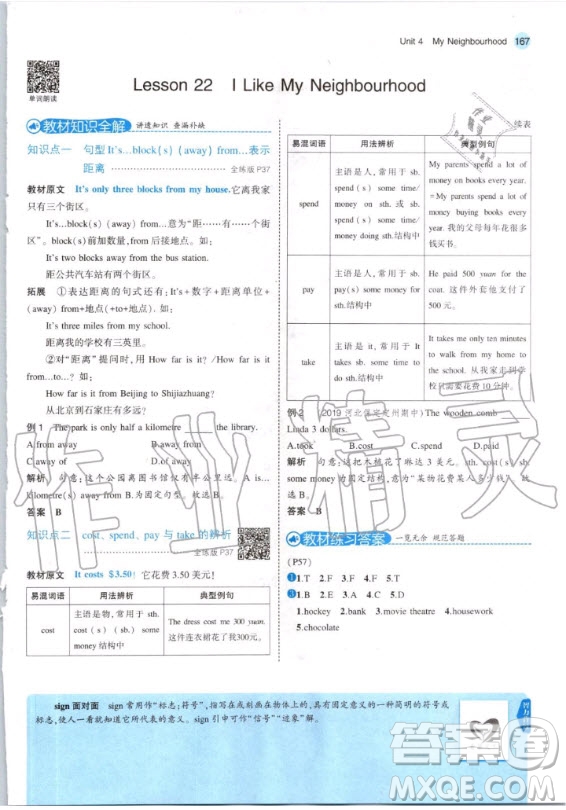 Unit 4 My Neighbourhood 167
单词朗读
Lesson 22 I Like My Neighbourhood
教材知识全解 讲透知识 查漏补缺
知识点一 句型It's…block(s) (away) from…表示
距离 全练版P37
教材原文 It's only three blocks from my house.它离我家
只有三个街区。
It's…block(s) (away) from…意为“距……有……个街
区”。block(s)前加数量,from后接地点。如:
It's two blocks away from the bus station.
距公共汽车站有两个街区。
拓展 ①表达距离的句式还有:It's+数字+距离单位+
(away) (from+地点) (+to+地点).如:
It's three miles from my school.
距离我的学校有三英里。
②对“距离”提问时,用How far is it? /How far is it
from…to…? 如:
How far is it from Beijing to Shijiazhuang?
从北京到石家庄有多远?
例1 The park is only half a kilometre the library.
A.from away B.away from
C.away of D.of away
解析 句意:这个公园离图书馆仅有半公里远。A is…
kilometre(s) away from B为固定结构。故选B。
答案 B
知识点二 cost、spend、pay与take的辨析
全练版P37
教材原文 It costs $3.50! 它花费3.50美元!
易混词语 用法辨析 典型例句
cost 主语是物,常用于sth. cost(s) (sb.) some money结构中 The dress cost me 300 yuan. 这件连衣裙花了我300元。
续表
易混词语 用法辨析 典型例句
spend 主语是人,常用于sb. spend(s) some time/ money on sth.或sb. spend(s) some time/ money doing sth.结构中 My parents spend a lot of money on books every year. =My parents spend a lot of money buying books every year.我的父母每年花很多钱买书。
pay 主语是人,常用于sb. pay(s) some money for sth.结构中 He paid 500 yuan for the coat. 这件外套他支付了500元。
take 主语是it,常用于It takes sb. some time to do sth.结构中 It takes me only ten minutes to walk from my home to school.从我家走到学校只需要花费10分钟。
例2 (2019河北保定定州期中)The wooden comb
Linda 3 dollars.
A.took B.cost C.spend D.paid
解析 句意:这把木梳花了琳达3美元。sth. cost(s) sb.
some money为固定结构,意为“某物花费某人多少钱”。故选B。
答案 B
教材练习答案 一览无余 规范答题
(P57)
1 1.T 2.F 3.F 4.F 5.T
3 1.B 2.E 3.A 4.C 5.D
1.hockey 2.bank 3.movie theatre 4.housework
5.chocolate
sign面对面 sign常用作“标志;符号”,指写在或刻画在物体上的,具有固定意义的一种简明的符号或
标志,使人一看就知道它所代表的意义。sign引申可作“信号”“迹象”解。
作业精灵
答案圈
MXQE.COM